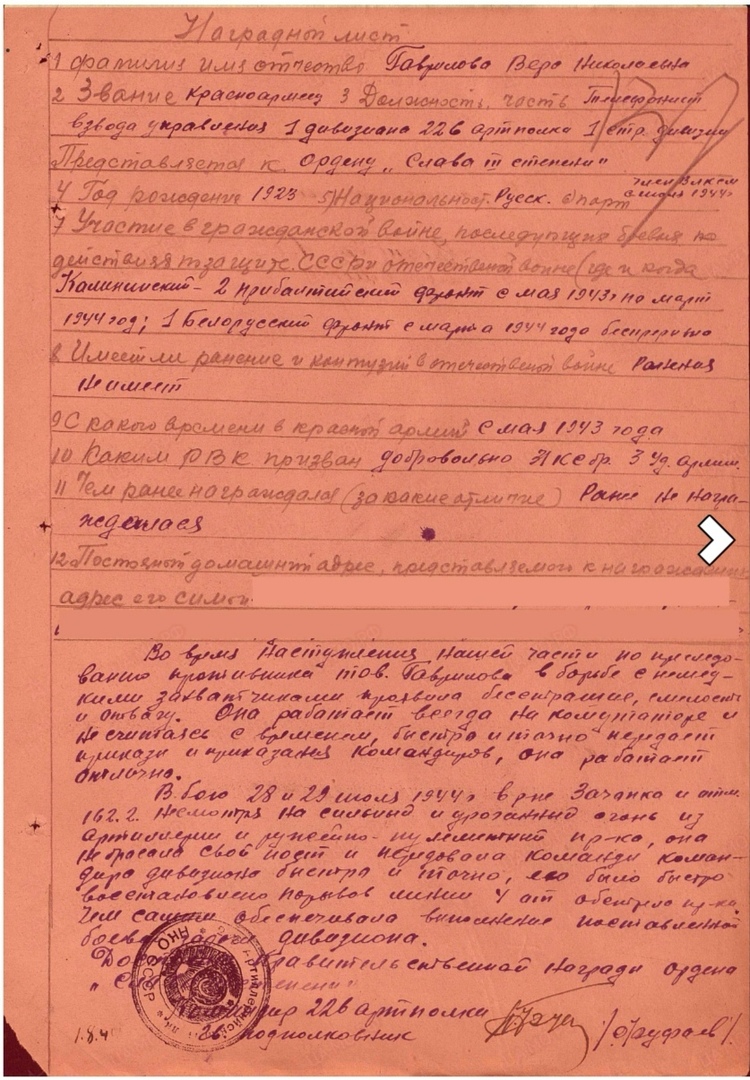 Наградной лист
1 фамилия имя отчество Гаврилова Вера Николаевна
2 Звание Красноармеец 3 Должность, часть Телефонист
взвода управления 1 дивизиона 226 артполка 1 стр. дивизии
Представляется к ордену „Слава III степени"
4 Год рождение 1923 5) Национальност. Русск. 6) парт член ВЛКСМ
с июня 1944 г
7 Участие в гражданской войне, последующия боевия
действия по защите СССР и отечественной войне (где и когда
Калининский - 2 прибалтийский фронт с мая 1943 г по март
1944 год; 1 Белорусский фронт с марта 1944 года беспрерывно
8 Имеет ли ранение и контузии в отечественой войне Ранения
не имеет
9 С какого времени в красной армии с мая 1943 года
10 Каким РВК призван добровольно 31 КСбр. 3 уд. армии.
11 Чем ранее награждался (за какие отличие) Ранее не награ-
ждалася
12 Постояной домашний адрес, представляемого к награждению
адрес его семьи
Во время наступления нашей части по преследо-
ванию противника тов. Гаврилова в борьбе с немец-
кими захватчиками проявила бесстрашие, смелость
и отвагу. Она работает всегда на комутаторе и
не считаясь с временем, быстро и точно передает
приказы и приказания командиров, она работает
отлично.
В бою 28 и 29 июля 1944 г в р-не Зачанка и отм.
162.2. несмотря на сильный и ураганный огонь из
артиллерии и ружейно-пулеметный пр-ка, она
не бросала свой пост и передовала команди коман-
дира дивизиона быстро и точно, ею было быстро
восстановлено порывов линии 4 от обстрела пр-ка
Чем самым обеспечивала выполнение поставленной
боевой задачи дивизиона.
Правительственной награди ордена
226 артполка
подполковник /Фруфаев/
1.8.4